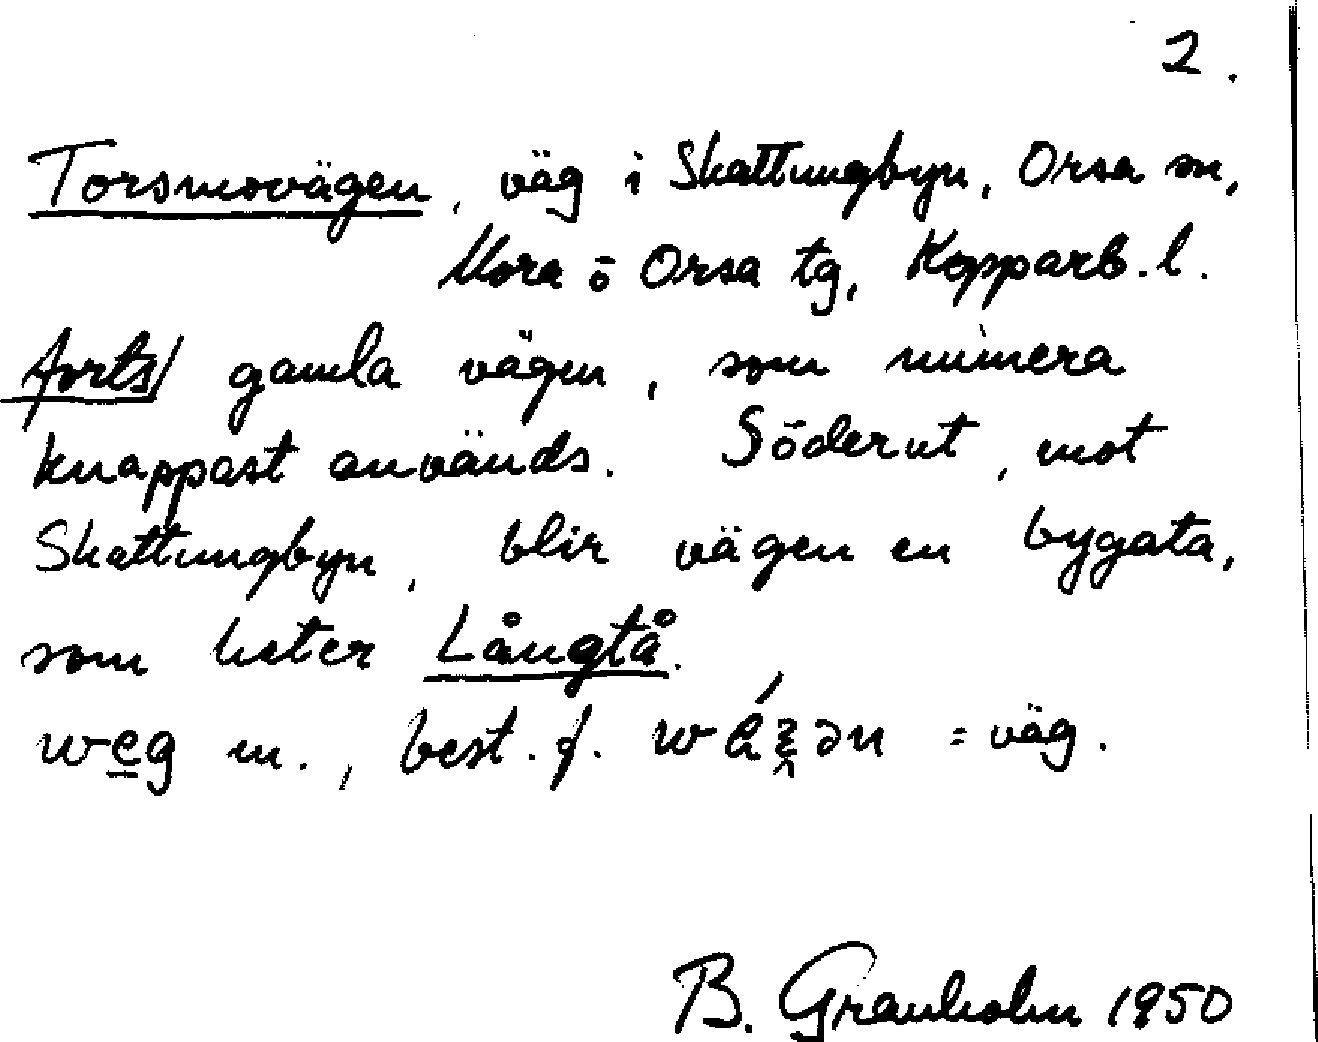 2.
Torsmovägen, väg i Skattungbyn, Orsa sn,
Mora o Orsa tg, Kopparb. l.
forts/ gamla vägen, som numera
knappast används. Söderut, mot
Skattungbyn, blir vägen en bygata,
som heter Långtå.
weg m., best. f. = väg.
B. Granholm 1950